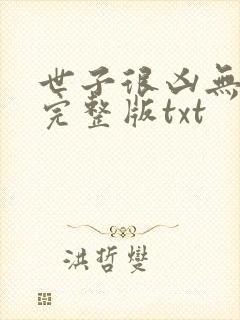 世子很凶無
完整版txt
洪哲燮